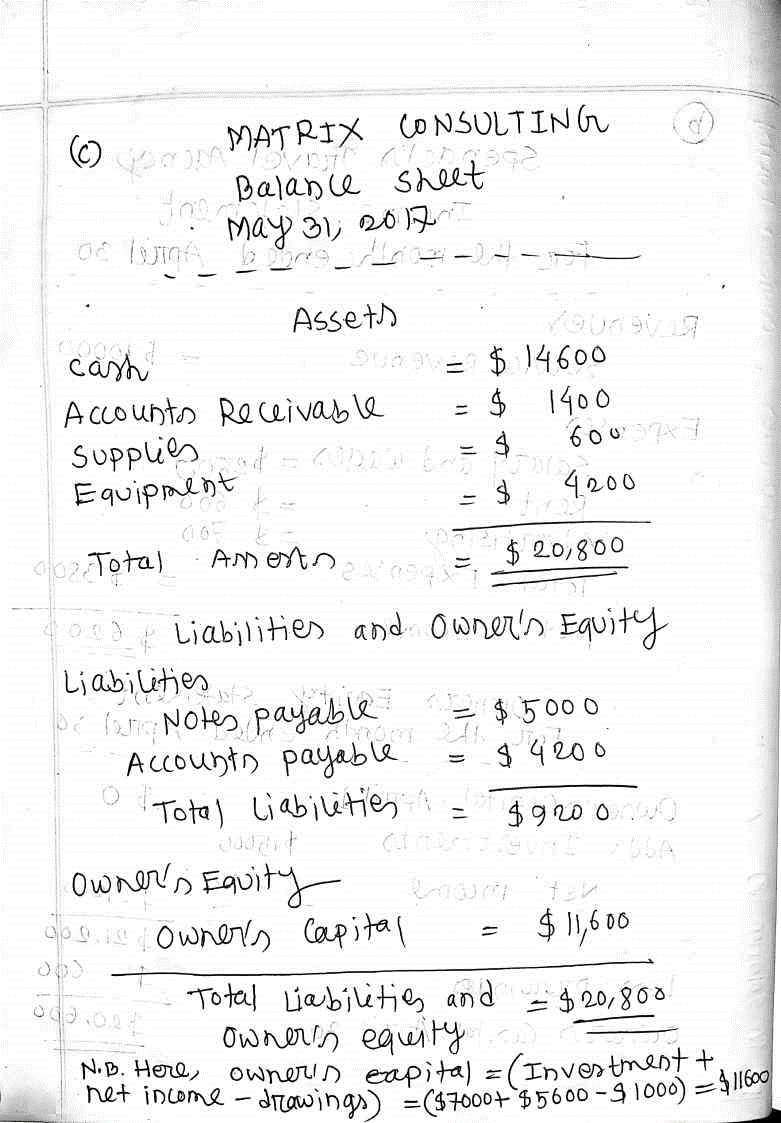 (c) MATRIX CONSULTING
Balance sheet
May 31, 2017
Assets
cash = $ 14600
Accounts Receivable = $ 1400
Supplies = $ 600
Equipment = $ 4200
Total Assets = $ 20,800
Liabilities and Owner's Equity
Liabilities
Notes payable = $ 5000
Accounts payable = $ 4200
Total Liabilities = $9200
Owner's Equity
Owner's Capital = $ 11,600
Total Liabilities and = $ 20,800
Owner's equity
N.B. Here, owner's capital = (Investment +
net income - drawings) = ($7000+ $5600 - $1000) = $11600